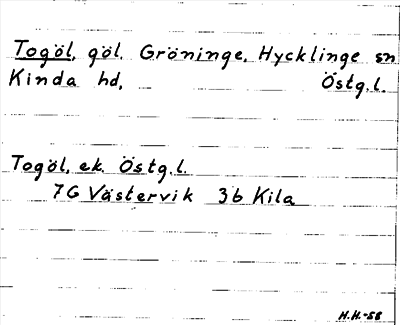 Togöl, göl. Gröninge, Hycklinge sn
Kinda hd, Östg.l.
Togöl, ek. Östg.l.
7G Västervik 3b Kila
H.H.-58